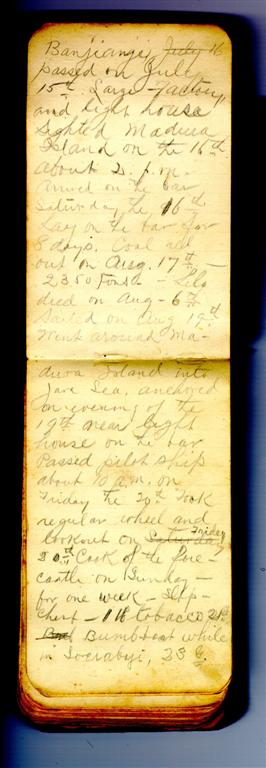 Banjiangi, July 16
passed on July
15th. Large Factory,
and light house
Sighted Madura
Island on the 16th
about 2. p.m.
Arrived on the bar
Saturday the 16th
Lay on the bar for
8 days. Coal all
out on Aug. 17th —
2350 Tons. —
died on Aug - 6th
Sailed on Aug 19th
Went around Ma-
dura Island into
Java Sea, anchored
on evening of the
19th near light
house on the bar
Passed pilot ship
about 10 a.m. on
Friday the 20th Took
regular wheel and
lookout on Saturday Friday
20th Cook of the fore-
castle on Sunday —
for one week — Slop-
chest — 1 lb tobacco
Bumboat while
in Soerabyi, 23